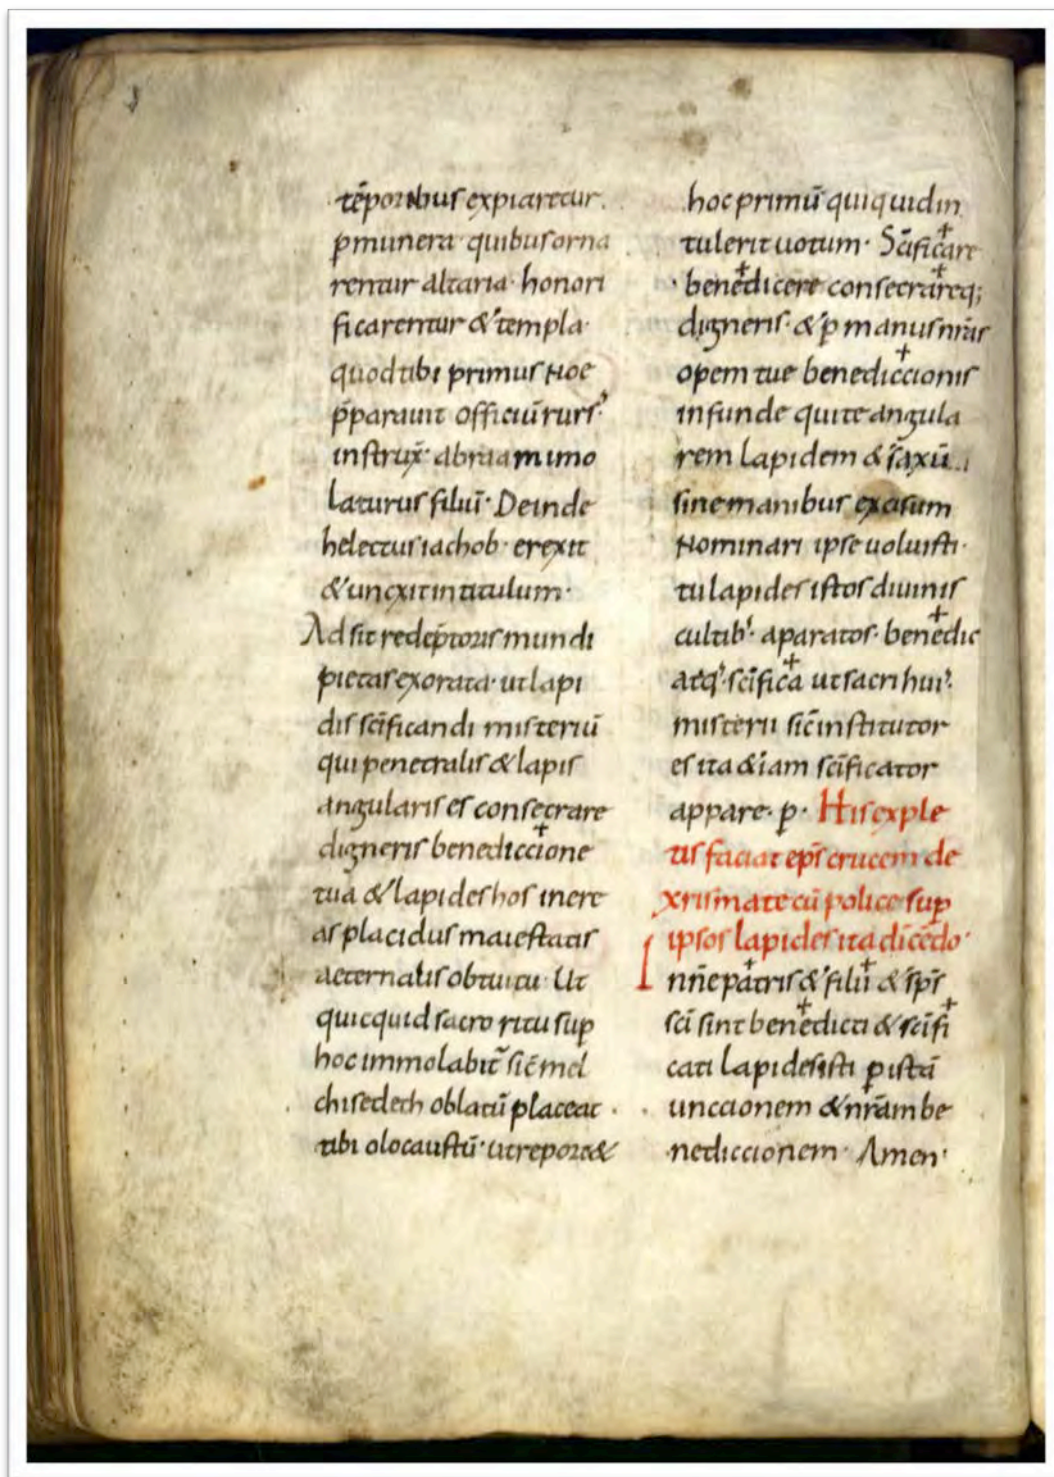 tēporibus expiaretur.
pmunera· quibus orna
rentur altaria· honori
ficarentur & templa·
quod tibi primus Noe
p̄parauit officiū rurs'
instrux̄· abraam imo
laturus filiū· Deinde
helectus iachob· erexit
& uncxit in titulum·
Ad sit redēptoris mundi
pietas exorata· ut lapi
dis sc̄ificandi misteriū
qui penetralis & lapis
angularis es consecrare
digneris benedic+cione
tua & lapides hos inert
as placidus maiestatis
aeternalis obtuitu· Ut
quicquid sacro ritu sup
hoc immolabit̄ sic̄ mel
chisedech oblatū placeat·
tibi olocaustū· ut reporte&
hoc primū quiquid in
tulerit uotum· Sc̄ific+are
ben+edicere consecr+areq;
digneris· & p manus nr̄as
opem tue benedic+cionis
infunde qui te angula
rem lapidem & saxū
sine manibus excisum
Nominari ipse uoluisti·
tu lapides istos diuinis
cultib'· aparatos· ben+edic
atq'· sc̄ific+a ut sacri hui'·
misterii sic̄ institutor
es ita & iam sc̄ificator
appare· p· His exple
tis faciat ep̄s crucem de
xrismate cū police sup
ipsos lapides ita dicēdo·
I nn̄e pa+tris & fi+lii & sp̄s
sc̄i sint ben+edicti & sc̄ifi+
cati lapides isti p istā
unccionem & nr̄am be
nediccionem· Amen·